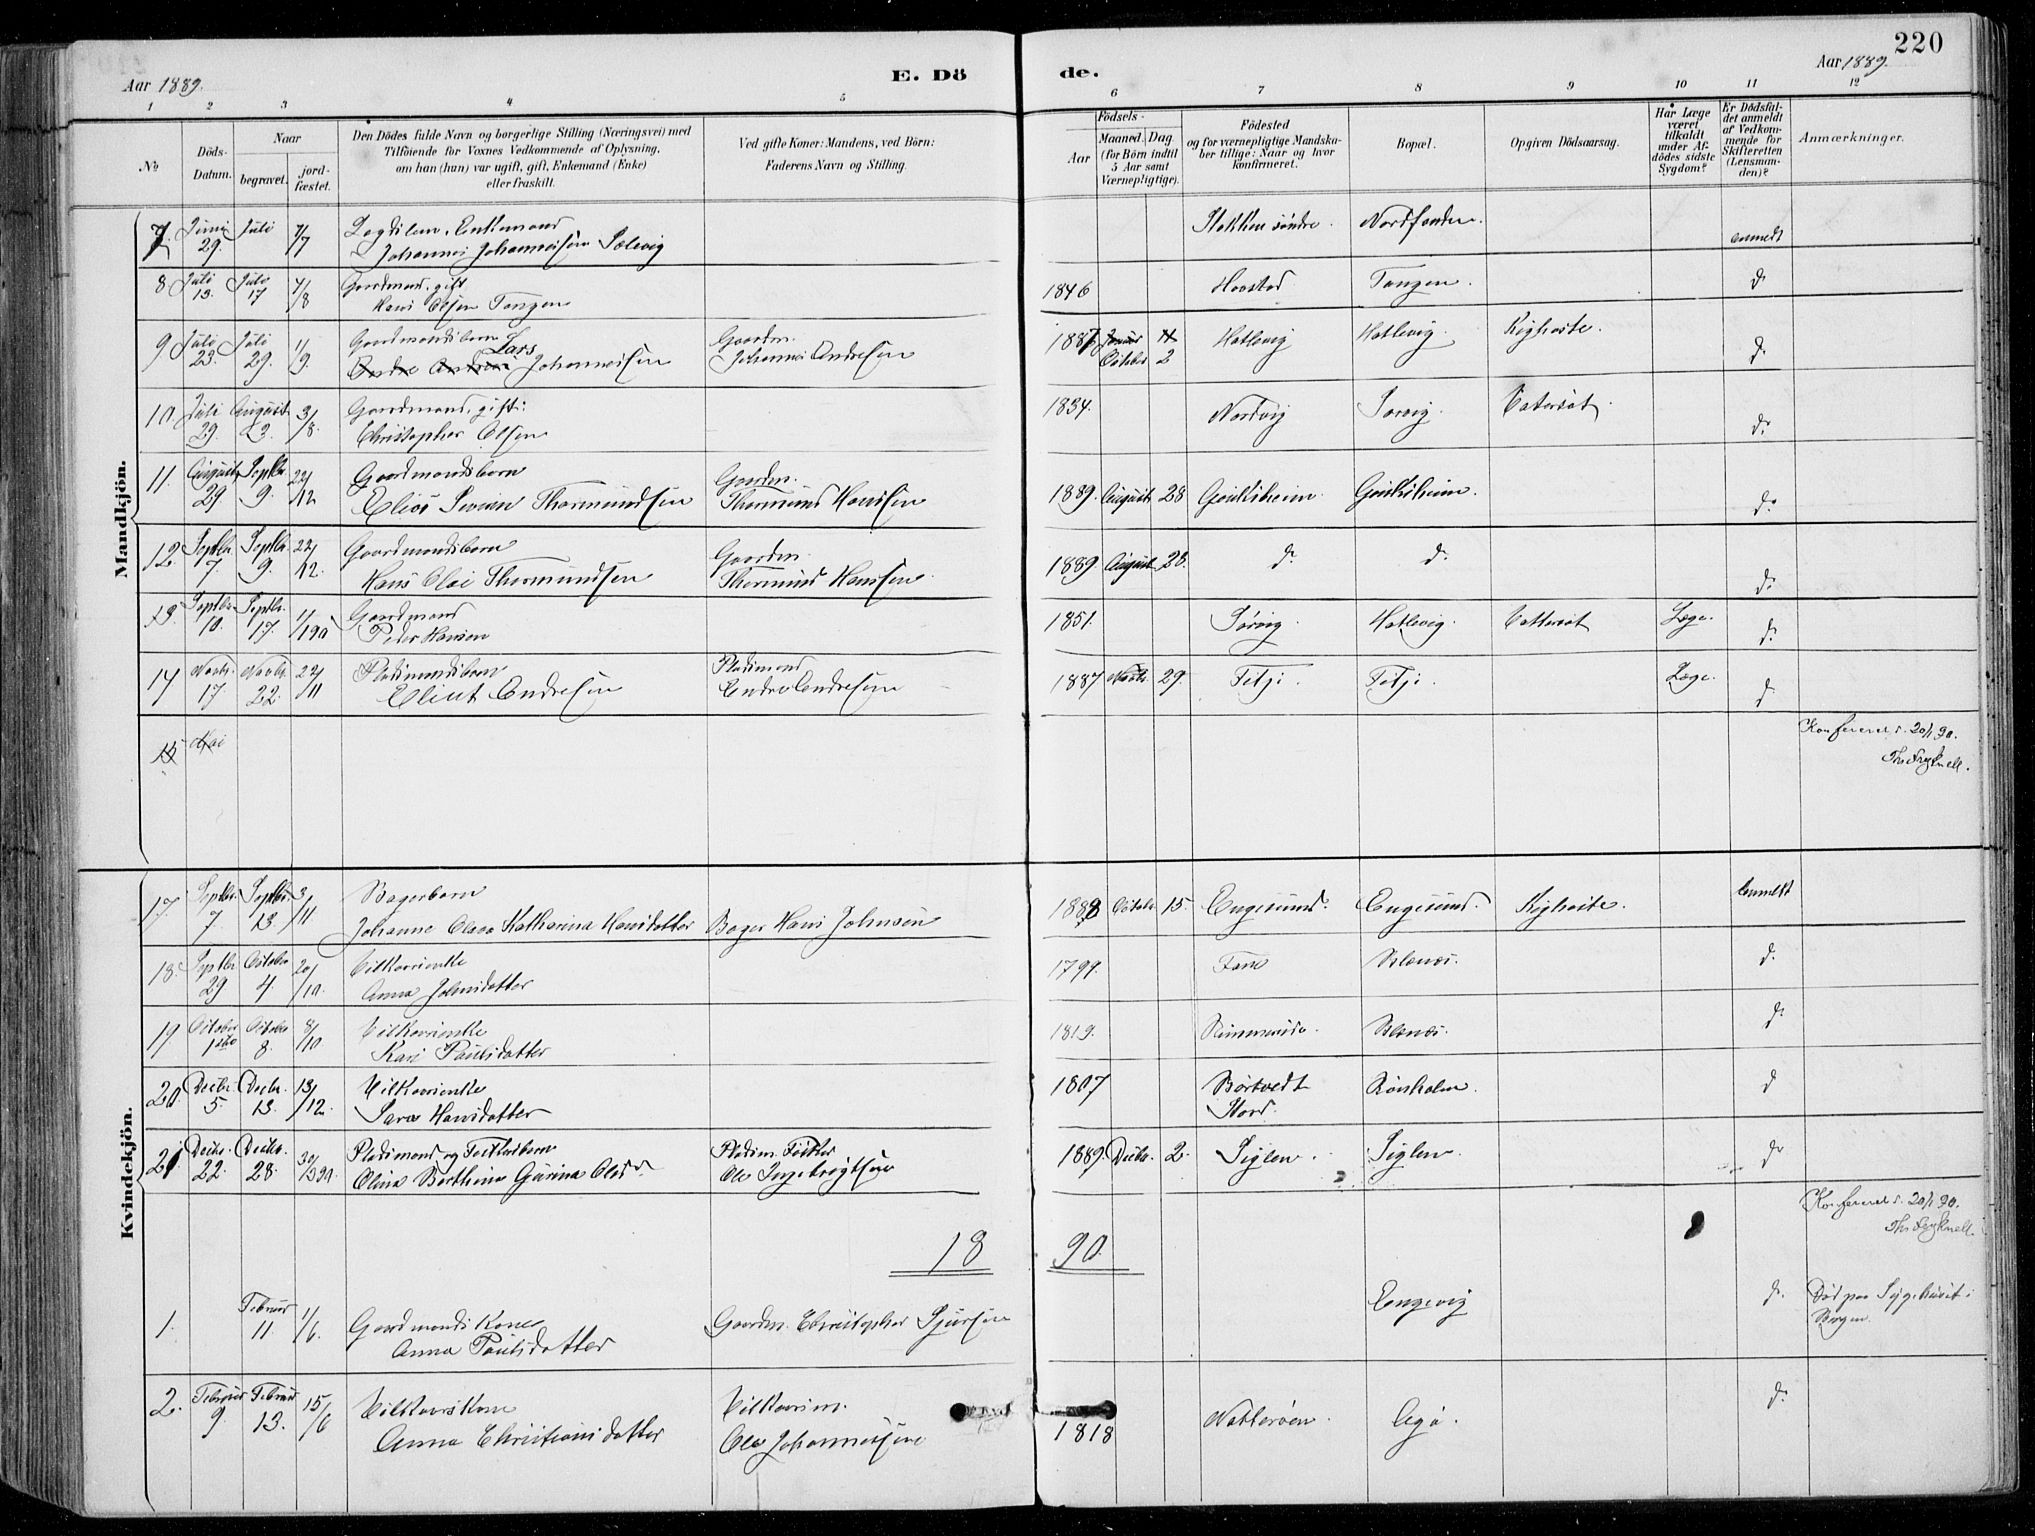 220
Aar 1889.
E. Dö
de.
Aar 1889.
1 2 3 4 5 6 7 8 9 10 11 12
No
Döds-
Datum.
Naar
begravet.
jord-
fæstet.
Den Dödes fulde Navn og borgerlige Stilling (Næringsvei) med
Tilföiende for Voxnes Vedkommende af Oplysning,
om han (hun) var ugift, gift, Enkemand (Enke)
eller fraskilt.
Ved gifte Koner: Mandens, ved Börn:
Faderens Navn og Stilling.
Födsels-
Aar
Maaned. Dag
(for Börn indtil
5 Aar samt
Værnepligtige).
Födested
og for værnepligtige Mandska-
ber tillige: Naar og hvor
konfirmeret.
Bopæl.
Opgiven Dödsaarsag.
Har Læge
været
tilkaldt
under Af-
dödes sidste
Sygdom?
Er Dödsfal-
det anmeldt
af Vedkom-
mende for
Skifteretten
(Lensman-
den)?
Anmærkninger.
Mandkjön.
7 Juni 29. Juli 7/7 Enkemand
Johannes Johannessen Sælevig
Stokken söndre. anmeldt
8 Juli 13. Juli 17 7/8 Gaardmand, gift
Hans Olsen Tangen
1846 Tangen. do
9 Juli 23. Juli 29. 1/9. Gaardmandsbarn
Lars Johannessen
Gaardm.
Johannes Andresen
1887 October 2 Hatlevig Hatlevig. Kighoste. do
10 Juli 29. August 3. 3/8. Gaardmand, gift.
Christopher Olsen
1834. Nordvig Sørvig. do
11. August 29 Septbr. 9. 22/12 Gaardmandsbarn
Elias Thormundsen
Gaardm.
Thormund Hanssen
1889. August 28 Geiteheim. Geiteheim. do
12 Septbr. 7 Septbr. 9. 22/12. Gaardmandsbarn
Hans Olai Thormundsen
Gaardm.
Thormund Hanssen
1889. August 28. do do do
13. Septbr. 10. Septbr. 17. 1/190 Gaardmand
Peder Hansen
1851. Sørvig. Hatlevig. Læge. do
14 Novbr. 17 Novbr. 22. 22/11 Pladsmandsbarn
Elint Andresen
Pladsmand
Andre Andresen
1887 Novbr. 29. Titji. Titji. Læge. do
15 Mai
Konfereret d. 20/1 90.
Kvindekjön.
17. Septbr. 7 Septbr. 13. 3/11 Bagerbarn
Johanne Olava Katharina Hansdatter Bager Hans Johnsen
1888 Octobr. 15. Engesund. Engesund. Kighoste. anmeldt
18. Septbr. 29 October 4. 20/10. Vilkaarsenke
Anna Johnsdatter
1799. do
19. October 1ste October 8. 8/10 Vilkaarsenke
Kari Paulsdatter
1819. do
20. Decbr. 5. Decbr. 13. 13/12. Vilkaarsenke
Sara Hansdatter
1807 Børtvedt
Stord. Rønholm. do
21 Decbr. 22. Decbr. 28. 30/1290. Pladsmand og Fiskerbarn
Olina Berthine Gurina Olsdr
Pladsm. Fisker
Ole Ingebrigtsen
1889. Decbr. 2. Siglen. Siglen. do
Konfereret d. 20/1 90.
18 90.
1. Februar 11. 1/6. Gaardmands Kone
Anna Paulsdatter
Gaardm. Christopher Sjursen
Engevig do Død paa Sygehuset i
Bergen.
2. Februar 9. Februar 13. 15/6 Vilkaarskone
Anna Christiansdatter
Vilkaarsm.
Ole Johannessen
1818 Agø. do